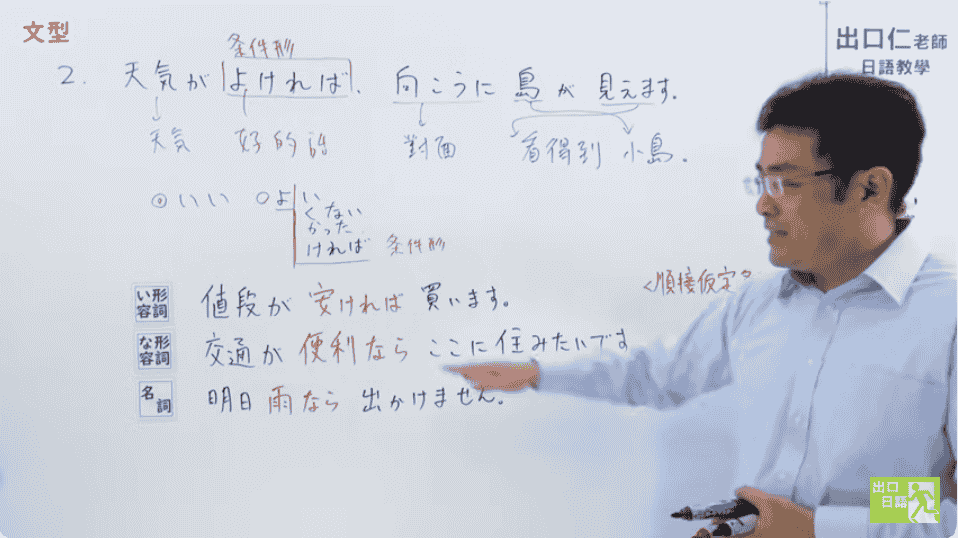 文型
出口仁老師
日語教學
条件形
2. 天気が よければ、向こうに 島が 見えます。
天気 好的話 對面 看得到 小島.
◎いい ○よい
くない
かった
ければ 条件形
い形容詞 値段が 安ければ 買います。
<順接仮定
な形容詞 交通が 便利なら ここに 住みたいです
名詞 明日 雨なら 出かけません。
出口日語